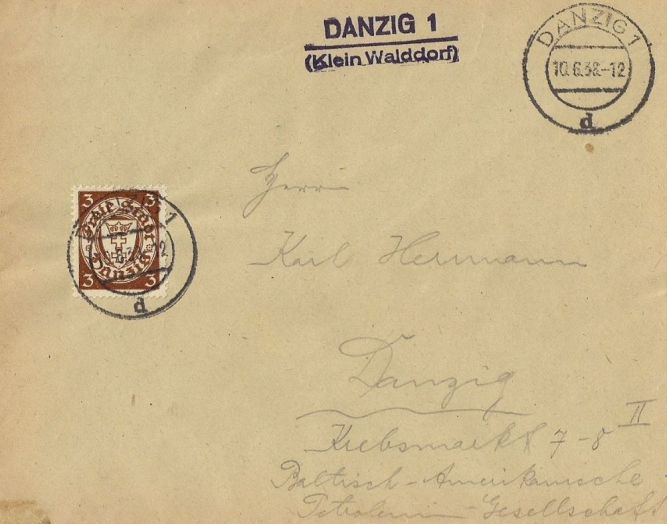 DANZIG 1
(Klein Walddorf)
DANZIG 1
10.6.38.-12
d
3 3
Freie Stadt
Danzig
3 3
1
d
Herrn
Karl Hermann
Danzig
Krebsmarkt 7-8 II
Baltisch-Amerikanische
Petroleum-Gesellschaft